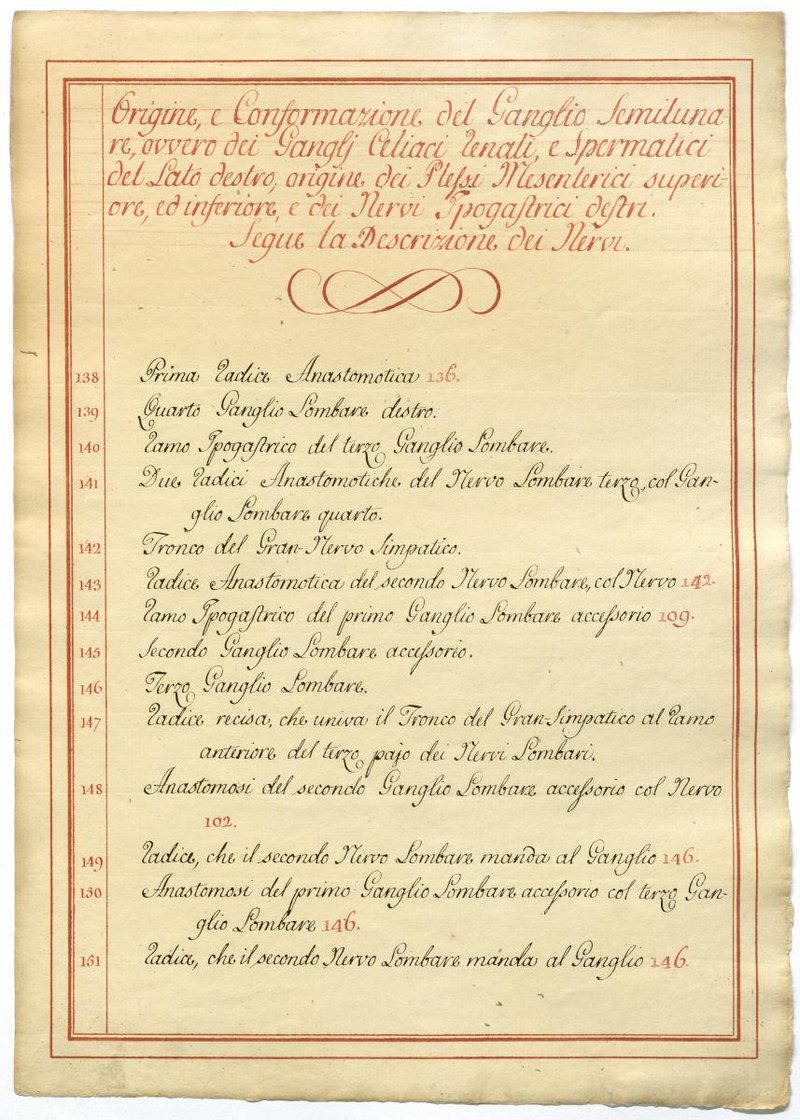 Origine, e Conformazione del Ganglio Semiluna-
re, ovvero dei Ganglj Celiaci Renali, e Spermatici
del Lato destro, origine dei Plessi Mesenterici superi-
ore, ed inferiore, e dei Nervi Ipogastrici destri.
Segue la Descrizione dei Nervi.
138 Prima Radice Anastomotica 136.
139 Quarto Ganglio Lombare destro.
140 Ramo Ipogastrico del terzo Ganglio Lombare.
141 Due Radici Anastomotiche del Nervo Lombare terzo, col Gan-
glio Lombare quarto.
142 Tronco del Gran-Nervo Simpatico.
143 Radice Anastomotica del secondo Nervo Lombare, col Nervo 142.
144 Ramo Ipogastrico del primo Ganglio Lombare accessorio 109.
145 Secondo Ganglio Lombare accessorio.
146 Terzo Ganglio Lombare.
147 Radice recisa, che univa il Tronco del Gran-Simpatico al Ramo
anteriore del terzo pajo dei Nervi Lombari.
148 Anastomosi del secondo Ganglio Lombare accessorio col Nervo
102.
149 Radice, che il secondo Nervo Lombare manda al Ganglio 146.
150 Anastomosi del primo Ganglio Lombare accessorio col terzo Gan-
glio Lombare 146.
151 Radice, che il secondo Nervo Lombare manda al Ganglio 146.